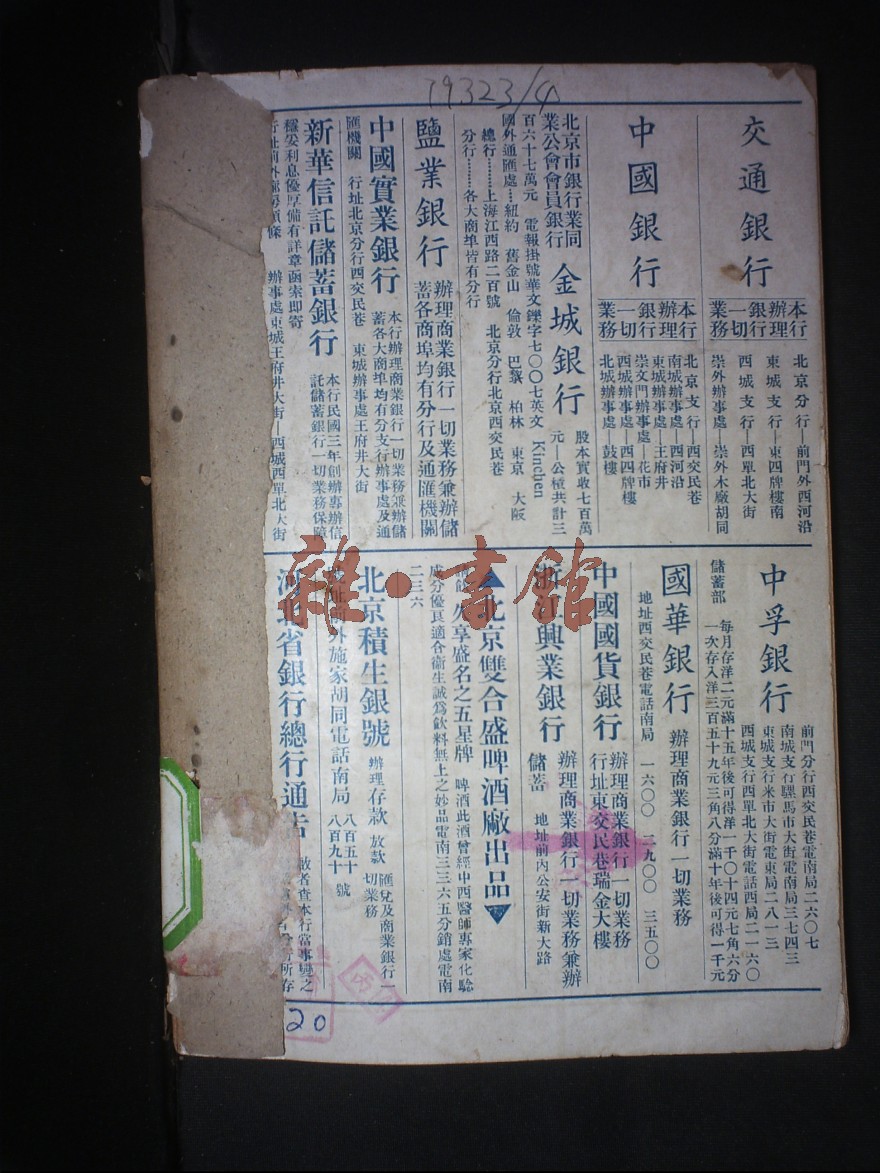 19323/4
交通銀行
本行辦理銀行一切業務
北京分行—前門外西河沿
東城支行—東四牌樓南
西城支行—西單北大街
崇外辦事處—崇外木廠胡同
中國銀行
本行辦理銀行一切業務
北京支行—西交民巷
南城辦事處—西河沿
東城辦事處—王府井
崇文門辦事處—花市
西城辦事處—西四牌樓
北城辦事處—鼓樓
北京市銀行業同業公會會員銀行
金城銀行
股本實收七百萬元—公積共計三
百六十七萬元 電報掛號華文鑠字七〇〇七英文 Kinchen
國外通匯處…紐約 舊金山 倫敦 巴黎 柏林 東京 大阪
總行……上海江西路二百號 北京分行北京西交民巷
分行……各大商埠皆有分行
鹽業銀行
辦理商業銀行一切業務兼辦儲
蓄各商埠均有分行及通匯機關
中國實業銀行
本行辦理商業銀行一切業務兼辦儲
蓄各大商埠均有分支行辦事處及通
匯機關 行址北京分行西交民巷 東城辦事處王府井大街
新華信託儲蓄銀行
本行民國三年創辦專辦信
託儲蓄銀行一切業務保障
穩妥利息優厚備有詳章函索即寄
辦事處東城王府井大街—西城西單北大街
中孚銀行
前門分行西交民巷電南局二六〇七
南城支行騾馬市大街電南局三七四三
東城支行米市大街電東局二八一三
西城支行西單北大街電話西局二一六〇
儲蓄部
每月存洋二元滿十五年後可得洋一千〇十四元七角六分
一次存入洋三百五十九元三角八分滿十年後可得一千元
國華銀行
辦理商業銀行一切業務
地址西交民巷電話南局 一六〇〇 三九〇〇 三五〇〇
中國國貨銀行
辦理商業銀行一切業務
行址東交民巷瑞金大樓
浙江興業銀行
辦理商業銀行一切業務兼辦
儲蓄 地址前內公安街新大路
▲北京雙合盛啤酒廠出品▼
久享盛名之五星牌 啤酒此酒曾經中西醫師專家化驗
成分優良適合衞生誠爲飲料無上之妙品電南三三六五分銷處電南
二三六
北京積生銀號
辦理存款 放款 匯兌及商業銀行一切業務
外施家胡同電話南局 八百五十 八百九十 號
河北省銀行總行通告
敬者查本行當事變之
所存
雜·書館
20